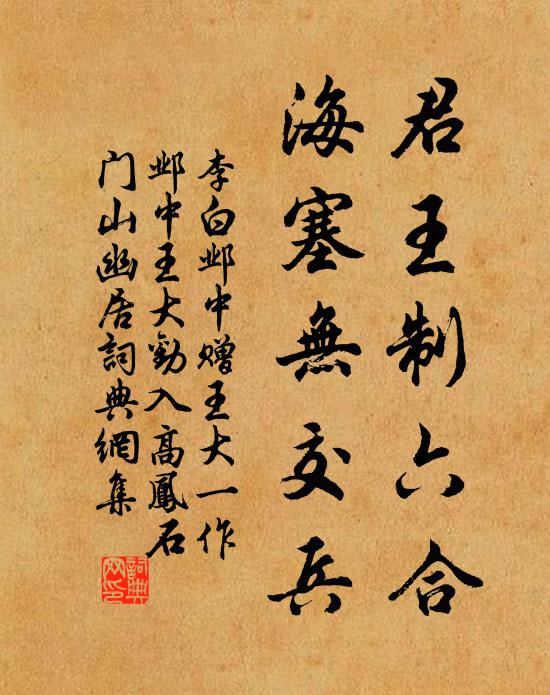 君王制六合
海塞無交兵
李白邺中赠王大一作
邺中王大勸入高鳳石
门山幽居詞典網集
詞典网印